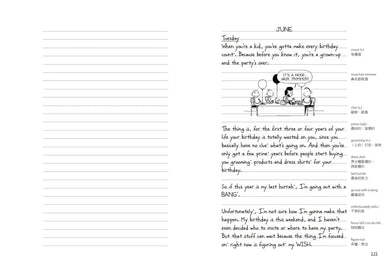 JUNE
Tuesday
When you're a kid, you've gotta make every birthday
count. Because before you know it, you're a grown-up
and the party's over.
IT'S A NOSE-
HAIR TRIMMER!
The thing is, for the first three or four years of your
life your birthday is totally wasted on you, since you
basically have no clue what's going on. And then you've
only got a few prime years before people start buying
you grooming products and dress shirts for your
birthday.
So if this year is my last hurrah, I'm going out with a
BANG.
Unfortunately, I'm not sure how I'm gonna make that
happen. My birthday is this weekend, and I haven't
even decided who to invite or where to have my party.
But that stuff can wait because the thing I'm focused
on right now is figuring out my WISH.
count (v.)
nose hair trimmer
clue (n.)
prime (adj.)
grooming (n.)
dress shirt
last hurrah
go out with a bang
unfortunately (adv.)
figure out
221